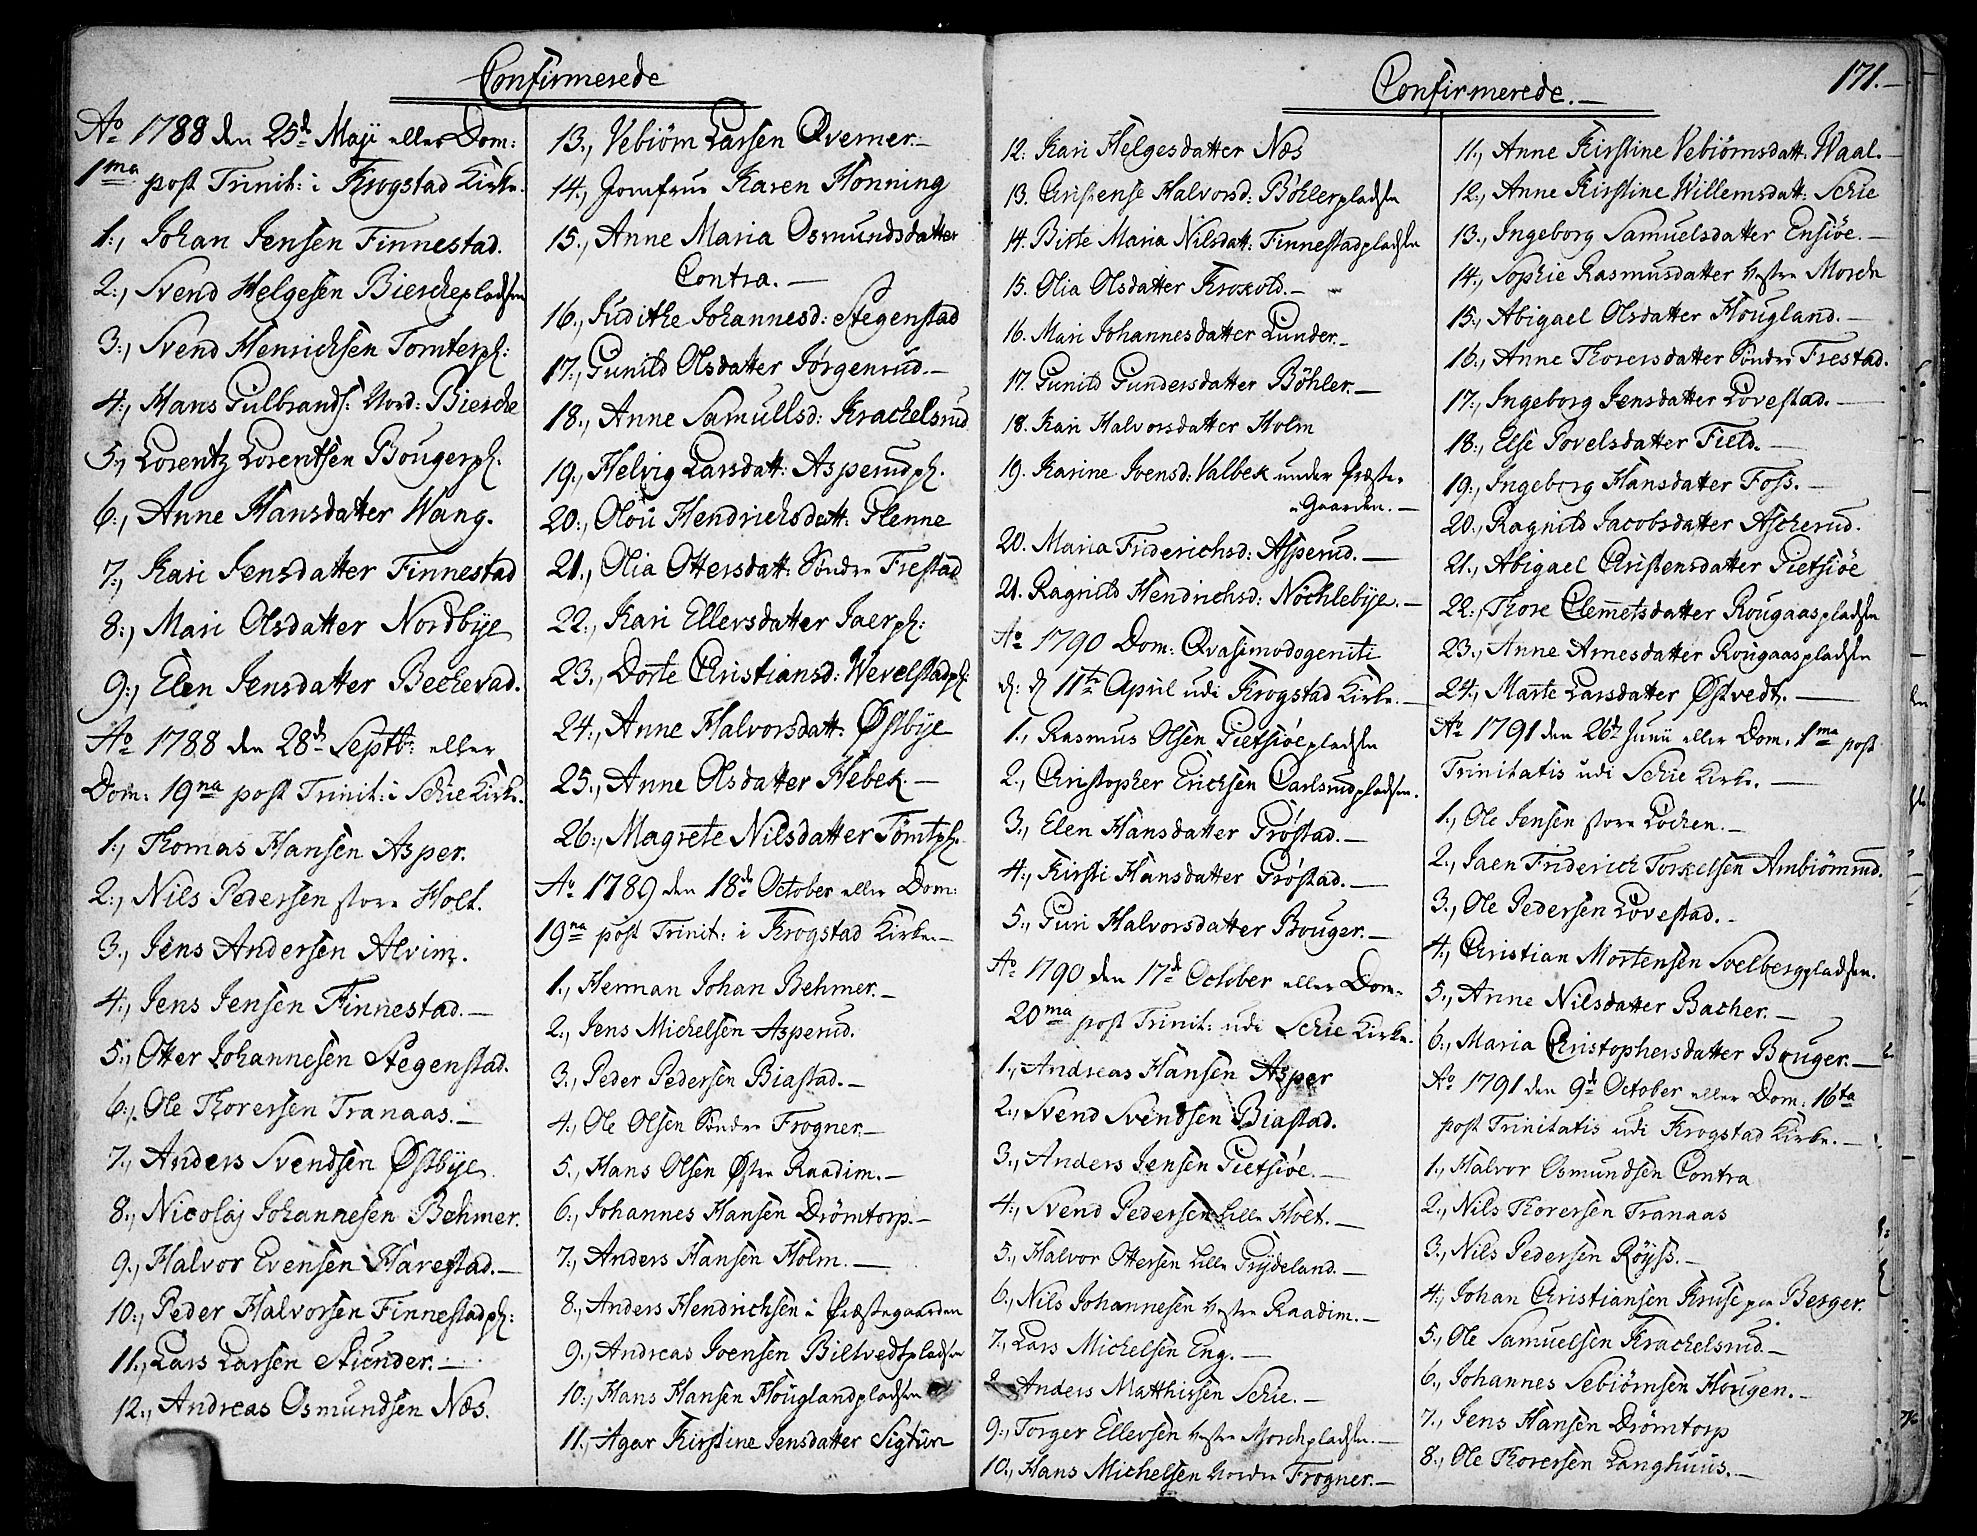 Confirmerede
Ao 1788 den 25de Maji eller Dom:
1ma post Trinit: i Krogstad Kirke.
1., Johan Jensen Finnestad.
2., Svend Helgesen Bierchepladsen
3., Svend Henrichsen Tomterpl:
4., Mans Gulbrands: Nord: Bierche
5., Lorentz Lorentsen Bougerpl.
6., Anne Hansdatter Wang.
7., Kari Jensdatter Finnestad
8., Mari Olsdatter Nordbye
9., Elen Jensdatter Bechevad.
Ao 1788 den 28de Septb: eller
Dom: 19na post Trinit: i Schie Kirke.
1., Thomas Hansen Asper.
2., Nils Pedersen store Holt.
3., Jens Andersen Alvim.
4., Jens Jensen Finnestad.
5., Otter Johannesen Stegenstad.
6., Ole Thorersen Tranaas.
7., Anders Svendsen Østbye
8., Nicolaj Johannesen Bøhmer.
9., Halvor Evensen Harestad.
10., Peder Halvorsen Finnestadpl:
11., Lars Larsen Stiender.
12., Andreas Osmundsen Næs.
13., Vebiørn Larsen Qverner.
14., Jomfrue Karen Honning
15., Anne Maria Osmundsdatter
Contra.
16., Judithe Johannesd: Stegenstad
17., Gunild Olsdatter Jørgenrud.
18., Anne Samullsd: Krachelsrud
19., Helvig Larsdatt: Asperudpl.
20., Olou Hendrichsdatt: Glenne
21., Olia Ottersdatt: Søndre Frestad
22., Kari Ellersdatter Jaerpl:
23., Dorte Christiansd: Wevelstadpl:
24., Anne Halvorsdatt: Østbye
25., Anne Olsdatter Hebek.
26., Magrete Nilsdatter Tømtpl.
Ao 1789 den 18de October eller Dom:
19na post Trinit: i Krogstad Kirke.
1., Herman Johan Behmer.
2., Jens Michelsen Asperud.
3., Peder Pedersen Biastad.
4., Ole Olsen Søndre Frogner.
5., Hans Olsen Østre Raadim.
6., Johannes Hansen Drømtorp.
7., Anders Hansen Holm.
8., Anders Hendrichsen i Præstegaarden
9., Andreas Ivensen Biltvedtpladsen
10., Hans Hansen Houglandpladsen
11., Agar Kirstine Jensdatter Sigtun
Confirmerede.
171.
12. Kari Helgesdatter Næs
13. Christense Halvorsd: Bøhlerpladsen
14. Birte Maria Nilsdatt: Finnestadpladsen
15. Olia Olsdatter Krokvold.
16. Mari Johannesdatter Lunder.
17. Gunild Gundersdatter Bøhler.
18. Kari Halvorsdatter Holm
19. Karine Ivensd: Valbek under Præste-
Gaarden.
20. Maria Friderichsd: Asperud.
21. Ragnild Hendrichsd: Nøchlebye.
Ao 1790 Dom: Qvasimodogeniti
d: d 11te April udi Krogstad Kirke.
1., Rasmus Olsen Gietsiøepladsen
2., Christopher Erichsen Carlsrudpladsen.
3., Elen Hansdatter Grøstad.
4., Kirsti Hansdatter Grøstad.
5., Guri Halvorsdatter Bouger.
Ao 1790 den 17de October eller Dom.
20ma post Trinit: udi Schie Kirke.
1., Andreas Hansen Asper
2., Svend Svendsen Biastad.
3., Anders Jensen Gietsiøe.
4., Svend Pedersen Lille Holt.
5., Halvor Ottersen Lille Frydeland.
6., Nils Johannesen Vestre Raadim.
7., Lars Michelsen Eng.
8., Anders Matthissen Schie.
9., Torger Ellersen Vestre Morchpladsen.
10., Hans Michelsen Nordre Frogner.
11., Anne Kirstine Vebiørnsdatt: Waal.
12., Anne Kirstine Willemsdatt: Schie
13., Ingeborg Samuelsdatter Ensiøe.
14., Sophie Rasmusdatter Vestre Morch
15., Abigael Olsdatter Hougland.
16., Anne Thorersdatter Søndre Frestad.
17., Ingeborg Jensdatter Lovestad.
18., Else Povelsdatter Field.
19., Ingeborg Hansdatter Foss.
20., Ragnild Jacobsdatter Ascherud.
21., Abigael Christensdatter Gietsiøe
22., Thore Clemmetsdatter Rougaaspladsen
23., Anne Arnesdatter Rougaaspladsen
24., Marte Larsdatter Østvedt.
Ao 1791 den 26de Junii eller Dom. 1ma post
Trinitatis udi Schie Kirke.
1., Ole Jensen store Løchen.
2., Jaen Friderich Torkelsen Ambiørnrud.
3., Ole Pedersen Lovestad.
4., Christian Mortensen Solbergpladsen.
5., Anne Nilsdatter Bacher.
6., Maria Christophersdatter Bouger.
Ao 1791 den 9de October eller Dom. 16ta
post Trinitatis udi Krogstad Kirke.
1., Halvor Osmundsen Contra
2., Nils Thorersen Tranaas
3., Nils Pedersen Røyss.
4., Johan Christiansen Kruse paa Berger.
5., Ole Samuelsen Krachelsrud.
6., Johannes Sebiørnsen Hougen.
7., Jens Hansen Drømtorp
8., Ole Thorersen Langhuus.